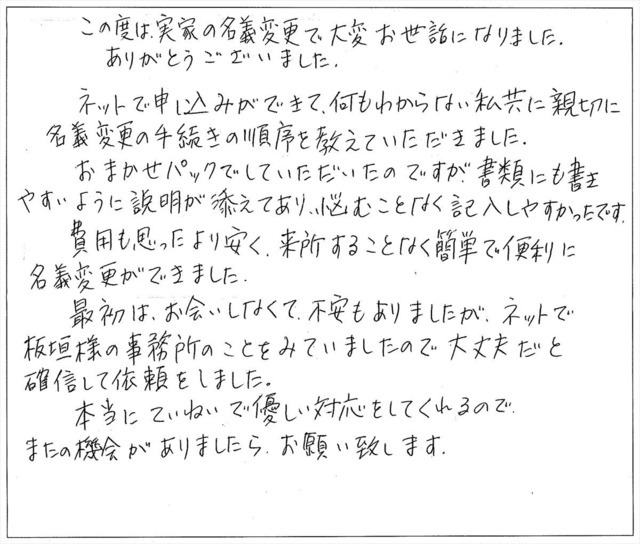 この度は、実家の名義変更で大変お世話になりました.
ありがとうございました.
ネットで申し込みができて、何もわからない私共に親切に
名義変更の手続きの順序を教えていただきました.
おまかせパックでしていただいたのですが、書類にも書き
やすいように説明が添えてあり、悩むことなく記入しやすかったです.
費用も思ったより安く、来所することなく簡単で便利に
名義変更ができました.
最初は、お会いしなくて、不安もありましたが、ネットで
板垣様の事務所のことをみていましたので大丈夫だと
確信して依頼をしました。
本当にていねいで優しい対応をしてくれるので、
またの機会がありましたら、お願い致します.